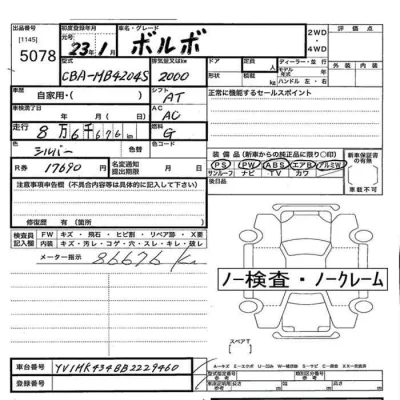 出品番号 初度登録年月 車名・グレード 評価点
[1145] 元号
5078 23年1月 ボルボ 2WD・4WD
型式 排気量又はkw ドア 人員 ディーラー・並行 外装 内装
CBA-MB4204S 2000 形状 モデル年式
積載 ハンドル 左・右
車歴 自家用・( ) シフト AT 正常に機能するセールスポイント
車検満了日 AC
年 月 日 AC
走行 8万6千676km 燃料 G
色 シルバー 色 カラーコード
R券 17690円 名変通知提出期限 月 日
装備品(新車からの純正品に限り○印)
PS PW ABS エアB アルミSW
サンルーフ ナビ TV カワ
新車保証書の有無
有・無
注意事項申告欄(不具合内容等は具体的に記入して下さい) 装日品
修復歴 有(箇所)
検査員 FW キズ・飛石・ヒビ割・リペア跡・X要
記入欄 内装 キズ・汚レ・コゲ・穴・スレ・キレ・破レ
メーター指示 86676 km
ノー検査・ノークレーム
スペアT
車台番号 YV1MK434BB2229460
登録番号
A=キズ E=エクボ U=凹み W=補修跡 S=サビ C=腐食 XX=交換済